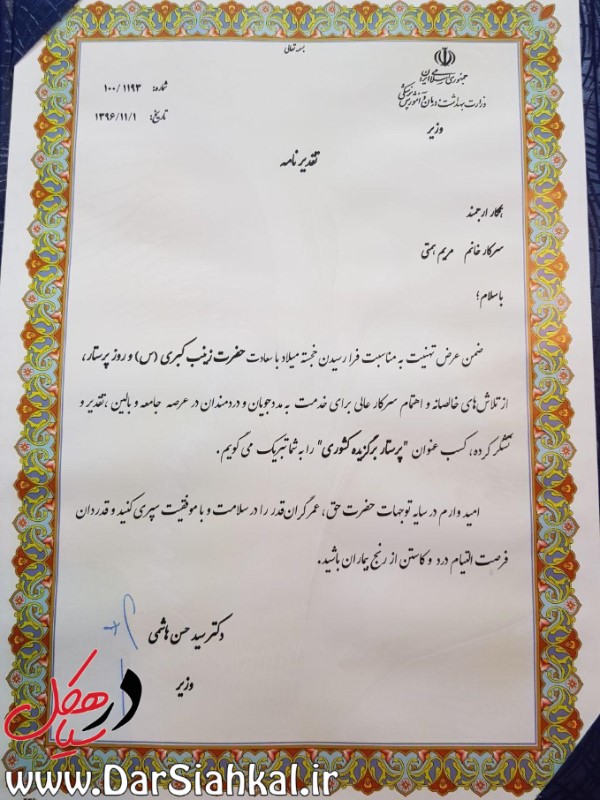 بسمه تعالی
جمهوری اسلامی ایران
وزارت بهداشت، درمان و آموزش پزشکی
وزیر
شماره: ۱۰۰/۱۱۹۳
تاریخ: ۱۳۹۶/۱۱/۱
تقدیر نامه
همکار ارجمند
سرکار خانم مریم همتی
با سلام؛
ضمن عرض تهنیت به مناسبت فرا رسیدن خجسته میلاد با سعادت حضرت زینب کبری (س) و روز پرستار،
از تلاش‌های خالصانه و اهتمام سرکار عالی برای خدمت به مددجویان و دردمندان در عرصه جامعه و بالین، تقدیر و
تشکر کرده، کسب عنوان "پرستار برگزیده کشوری" را به شما تبریک می گویم.
امید وارم در سایه توجهات حضرت حق، عمر گران قدر را در سلامت و با موفقیت سپری کنید و قدردان
فرصت التیام درد و کاستن از رنج بیماران باشید.
دکتر سید حسن هاشمی
وزیر
در سیاهکل
www.DarSiahkal.ir